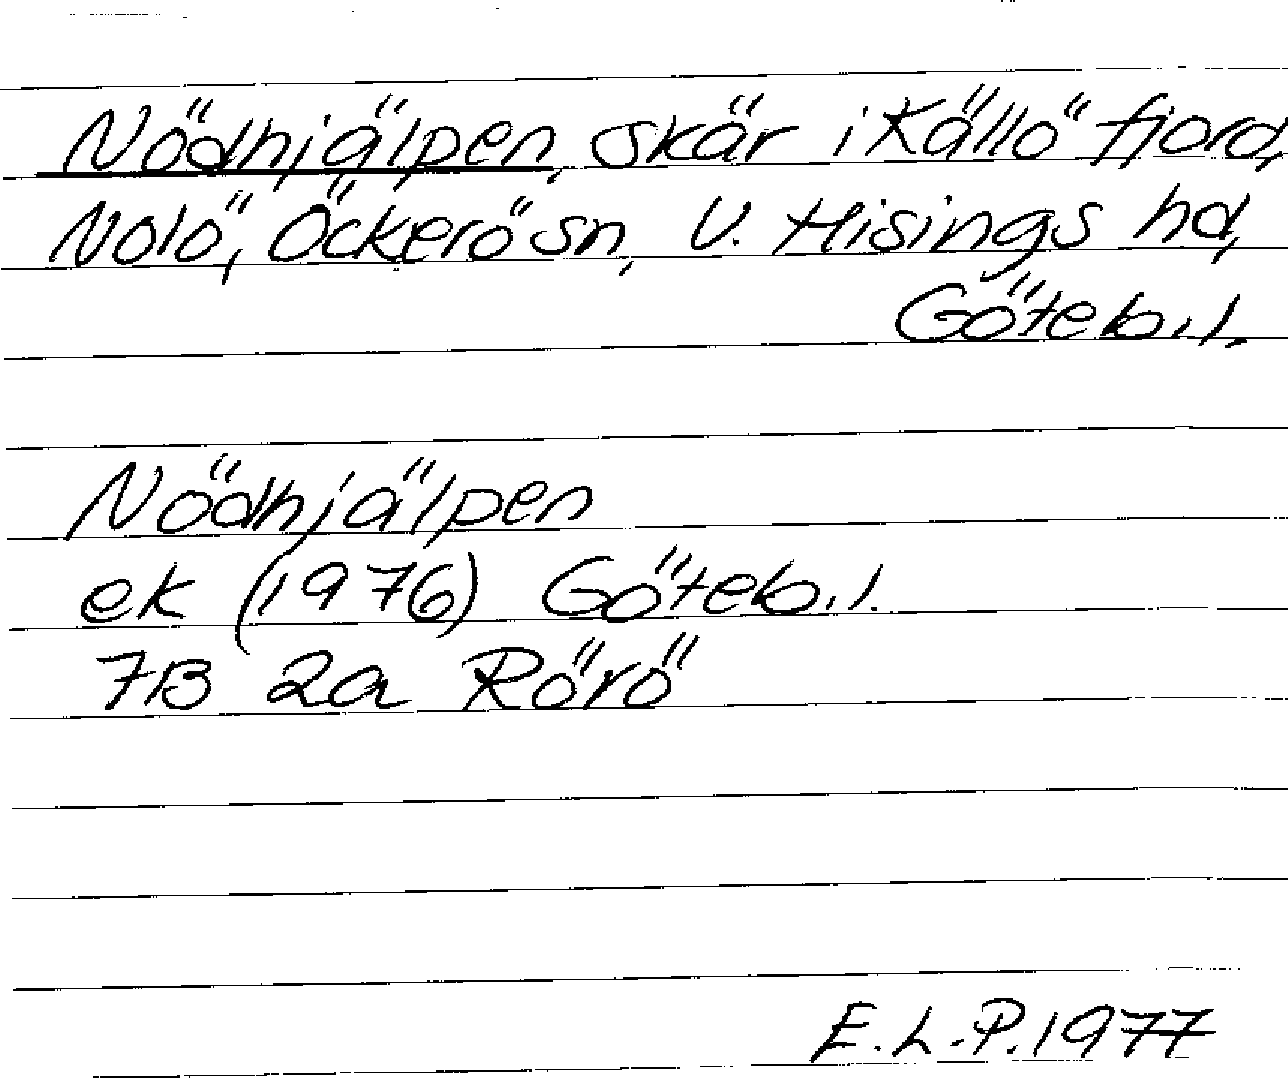 Nödhjälpen, skär i Källö fjord,
Nolö, Öckerö sn, V. Hisings hd,
Göteb.l.
Nödhjälpen
ek (1976) Göteb.l.
7B 2a Rörö
E.L.P. 1977